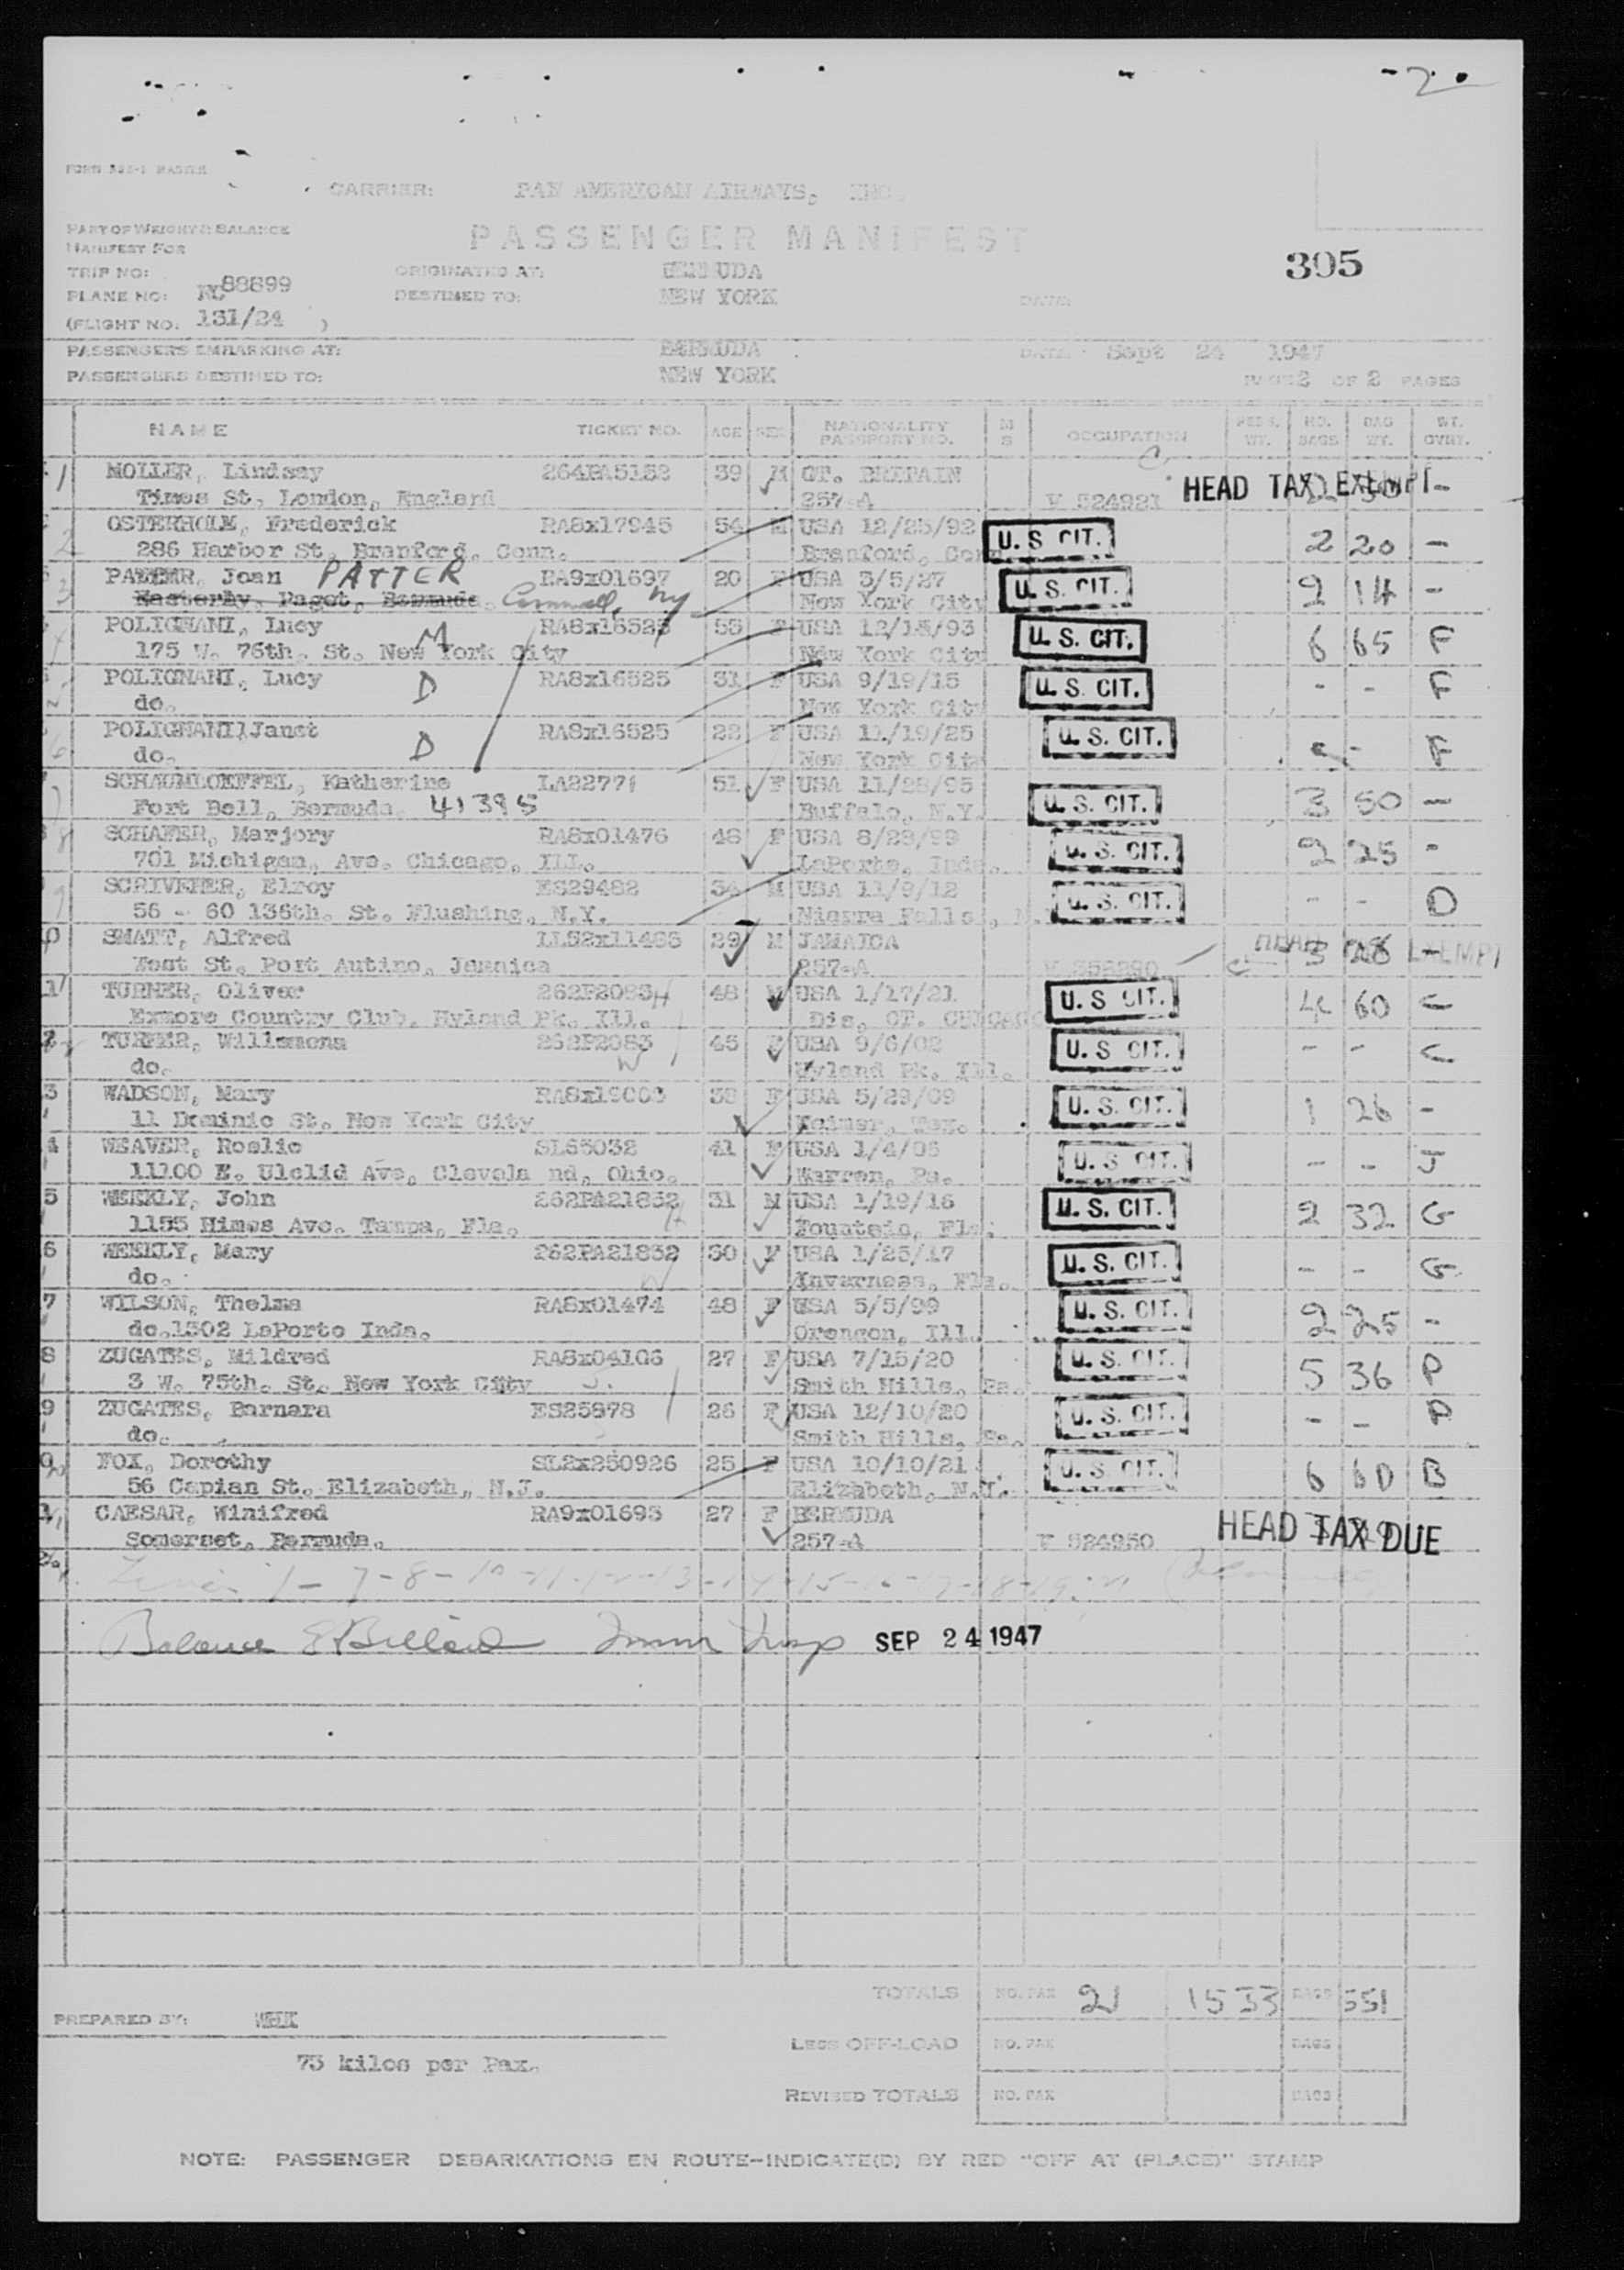 FORM MASTER
CARRIER: PAN AMERICAN AIRWAYS, INC.
PART OF WEIGHT & BALANCE
MANIFEST FOR
PASSENGER MANIFEST
305
TRIP NO:
ORIGINATED AT: BERMUDA
PLANE NO: NC88899
DESTINED TO: NEW YORK
DATE:
(FLIGHT NO. 131/24 )
PASSENGERS EMBARKING AT: BERMUDA DATE: Sept 24 1947
PASSENGERS DESTINED TO: NEW YORK
PAGE 2 OF 2 PAGES
NAME TICKET NO. AGE SEX NATIONALITY PASSPORT NO. M S OCCUPATION PERS. WT. NO. BAGS BAG WT. ST. OVRT.
1 MOLLER, Lindsay 264PA5152 39 M GT. BRITAIN HEAD TAX EXEMPT -
Times St, London, England 257-A V 524921
2 OSTERHOLM, Frederick RA8x17945 54 M USA 12/25/92 U.S. CIT. 2 20 -
286 Harbor St. Branford, Conn. Branford, Conn
3 Joan PATTER RA9x01697 20 F USA 3/5/27 U.S. CIT. 2 14 -
Easterly, Paget, Bermuda. Cornwall, NY New York City
4 POLIGNANI, Lucy M RA8x16525 53 F USA 12/13/93 U.S. CIT. 6 65 F
175 W. 76th. St. New York City New York City
POLIGNANI, Lucy D RA8x16525 31 F USA 9/19/15 U.S. CIT. - - F
do. New York City
6 POLIGNANI, Janet D RA8x16525 22 F USA 11/19/25 U.S. CIT. - - F
do. New York City
7 SCHAUMLOEFFEL, Katherine LA22771 51 F USA 11/28/95 U.S. CIT. 3 50 -
Fort Bell, Bermuda. 41395 Buffalo, N.Y.
8 SCHAFER, Marjory RA8x01476 48 F USA 8/28/99 U.S. CIT. 2 25 -
701 Michigan, Ave. Chicago, ILL. LaPorte, Inda.
9 SCRIVENER, Elroy ES29482 34 M USA 11/9/12 U.S. CIT. - - D
56 - 60 136th. St. Flushing, N.Y. Niagra Falls, N.
SMATT, Alfred LL52x11465 29 M JAMAICA 3 28
West St. Port Autino, Jamaica 257-A
TURNER, Oliver 262P2083 H 48 M USA 1/17/21 U.S. CIT. 4 60 C
Exmore Country Club, Hyland Pk. Ill. Dis. CT. CHICAGO
TURNER, Willamena 262P2083 W 45 F USA 9/6/02 U.S. CIT. - - C
do. Hyland Pk. Ill.
3 WADSON, Mary RA8x19003 38 F USA 5/29/09 U.S. CIT. 1 26 -
11 Dominic St. New York City
4 WEAVER, Roslie SL65032 41 F USA 1/4/06 U.S. CIT. - - J
11100 E. Ulclid Ave, Clevela nd, Ohio. Warren, Pa.
5 WEEKLY, John 262PA21832 H 31 M USA 1/19/16 U.S. CIT. 2 32 G
1155 Himes Ave. Tampa, Fla. Fountain, Fla.
6 WEEKLY, Mary 262PA21832 W 30 F USA 1/25/17 U.S. CIT. - - G
do. Inverness, Fla.
7 WILSON, Thelma RA8x01474 48 F USA 5/5/99 U.S. CIT. 2 25 -
do. 1502 LaPorte Inda. Orengon, Ill.
8 ZUGATES, Mildred RA8x04106 27 F USA 7/15/20 U.S. CIT. 5 36 P
3 W. 75th. St. New York City Smith Mills, Pa.
9 ZUGATES, Barnara ES25878 26 F USA 12/10/20 U.S. CIT. - - P
do. Smith Mills, Pa.
FOX, Dorothy SL2x250926 25 F USA 10/10/21 U.S. CIT. 6 60 B
56 Capian St. Elizabeth, N.J. Elizabeth, N.J.
CAESAR, Winifred RA9x01693 27 F BERMUDA HEAD TAX DUE
Somerset, Bermuda. 257-A V 524950
Balance SEP 24 1947
TOTALS NO. PAX 21 1533 BAGS 551
PREPARED BY: WEEK
LESS OFF-LOAD NO. PAX BAGS
73 kilos per Pax.
REVISED TOTALS NO. PAX BAGS
NOTE: PASSENGER DEBARKATIONS EN ROUTE-INDICATE(D) BY RED "OFF AT (PLACE)" STAMP